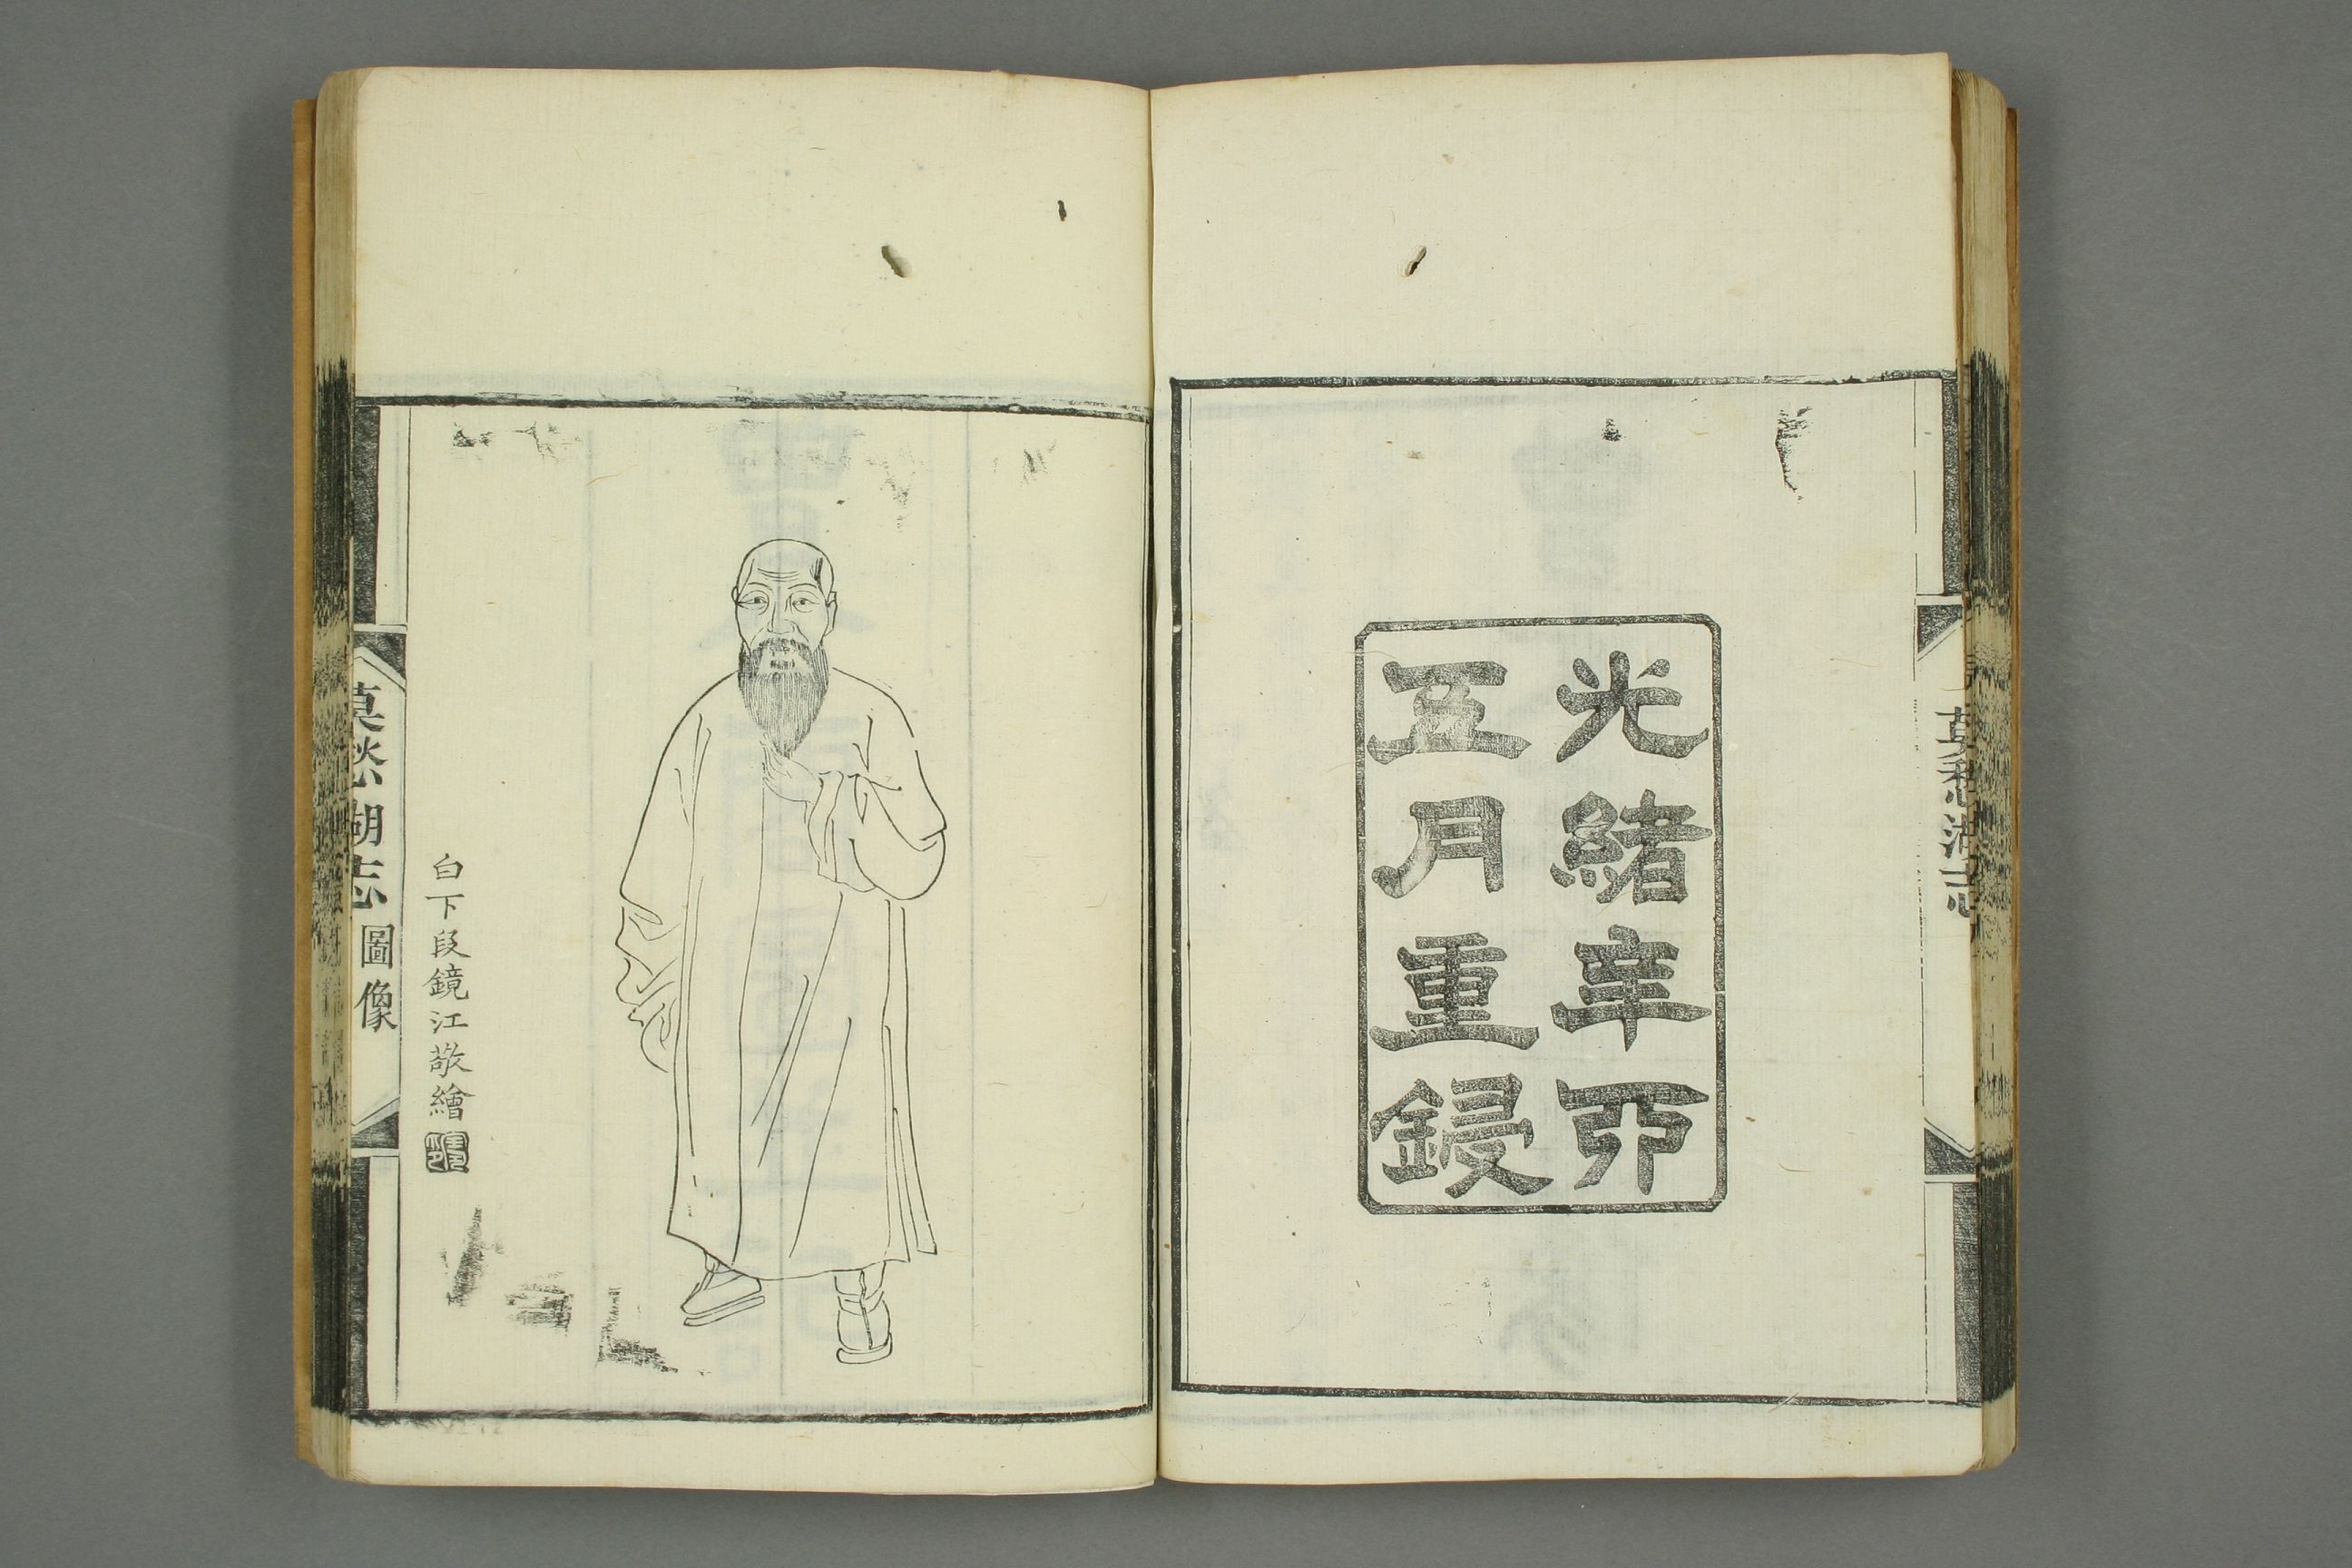 莫愁湖志
光緒辛卯
五月重鋟
白下段鏡江敬繪
莫愁湖志 圖像